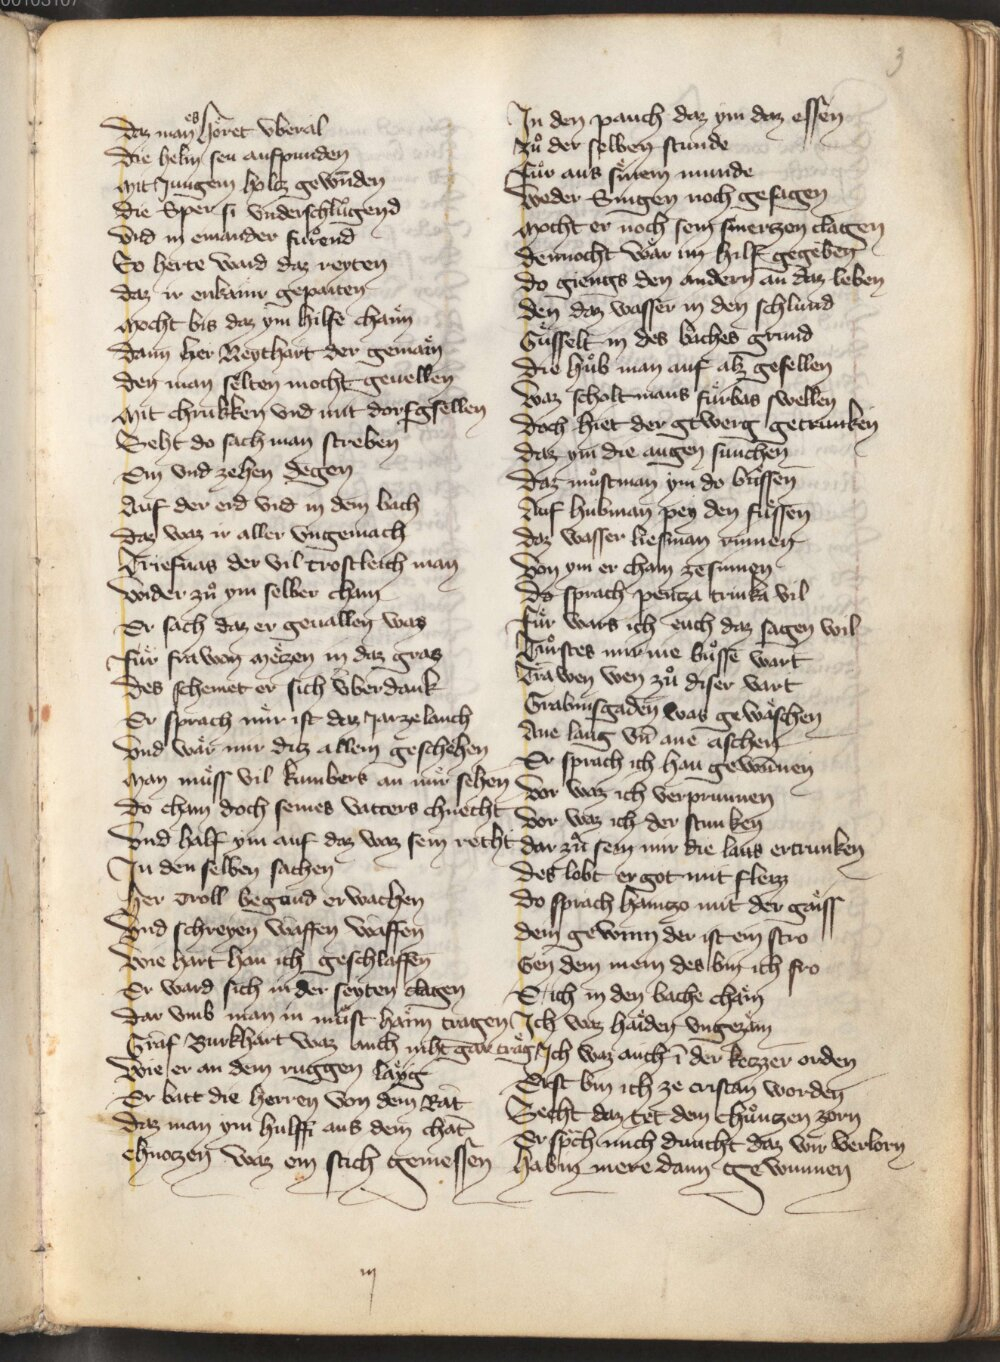 3
Daz man es horet vberal
Die helm sen aufpunden
Mit Jungem holtz gewunden
Die Sper si vnderschlůgend
Vnd in einander fůrend
So herte ward daz reyten
Daz ir enkainr gepaiten
Mocht bis daz ym hilfe cham
Dann her Neythart der gemain
Den man selten mocht geuellen
Mit chrukken vnd mit dorfgsellen
Seht do sach man streben
Ein vnd zehen degen
Auf der erd vnd in dem bach
Daz waz ir aller vngemach
Triefnas der vil trostleich man
Wider zů ym selber cham
Er sach daz er geuallen waz
Für frawen mëtzen in daz gras
Des schemet er sich vberdank
Er sprach mir ist daz Jar ze lanch
Vnd wär mir diz allein geschehen
Man müss vil kumbers an mir sehen
Do cham doch seines vatters chnecht
Vnd half ym auf daz waz sein recht
In den selben sachen
Her Troll begund erwachen
Vnd schreyen waffen waffen
Wie hart han ich geschlaffen
Er ward sich in der seyten clagen
Dar vmb man in müst haim tragen
Graf Burkhart waz auch niht gar träg
Wie er an dem ruggen läyg
Er batt die herren von dem Rat
Daz man ym hulffi aus dem chat
Chnotzen waz ein stich gemessen
In den pauch daz ym daz essen
Zů der selben stunde
Für aus sinem munde
Weder Singen noch gesagen
Mocht er noch sein smertzen clagen
Dennocht wär im hilf gegeben
Do giengs den andern an daz leben
Den daz wasser in den schlund
Güsselt in des baches grund
Die hůb man auf alz gesellen
Waz scholt mans fürbas swellen
Doch hiet der gtwerg getrunken
Daz ym die augen sunchen
Daz můst man ym do büssen
Auf hub man pey den füssen
Daz wasser lies man rinnen
Von ym er cham ze sinnen
Do sprach pentza trinka vil
Für wars ich euch daz sagen wil
Turstes mir nie büsse wart
Trawen wen zů diser vart
Grabinsgaden was gewäschen
Ane laug vn ane aschen
Er sprach ich han gewunnen
Vor waz ich verprunnen
Vor waz ich der stunken
Dar zů sein mir die laus ertrunken
Des lobt er got mit fleizz
Do sprach haintzo mit der gaiss
Dem gewinn der ist ein stro
Gen dem mein des bin ich fro
E ich in den bache cham
Ich waz haiden vngezäm
Ich waz auch i der ketzzer orden
Erst bin ich ze cristan worden
Secht daz tet dem chůntzen zorn
Er sprch mich duncht daz wir verlorn
Habin mere dann gewunnen
iij